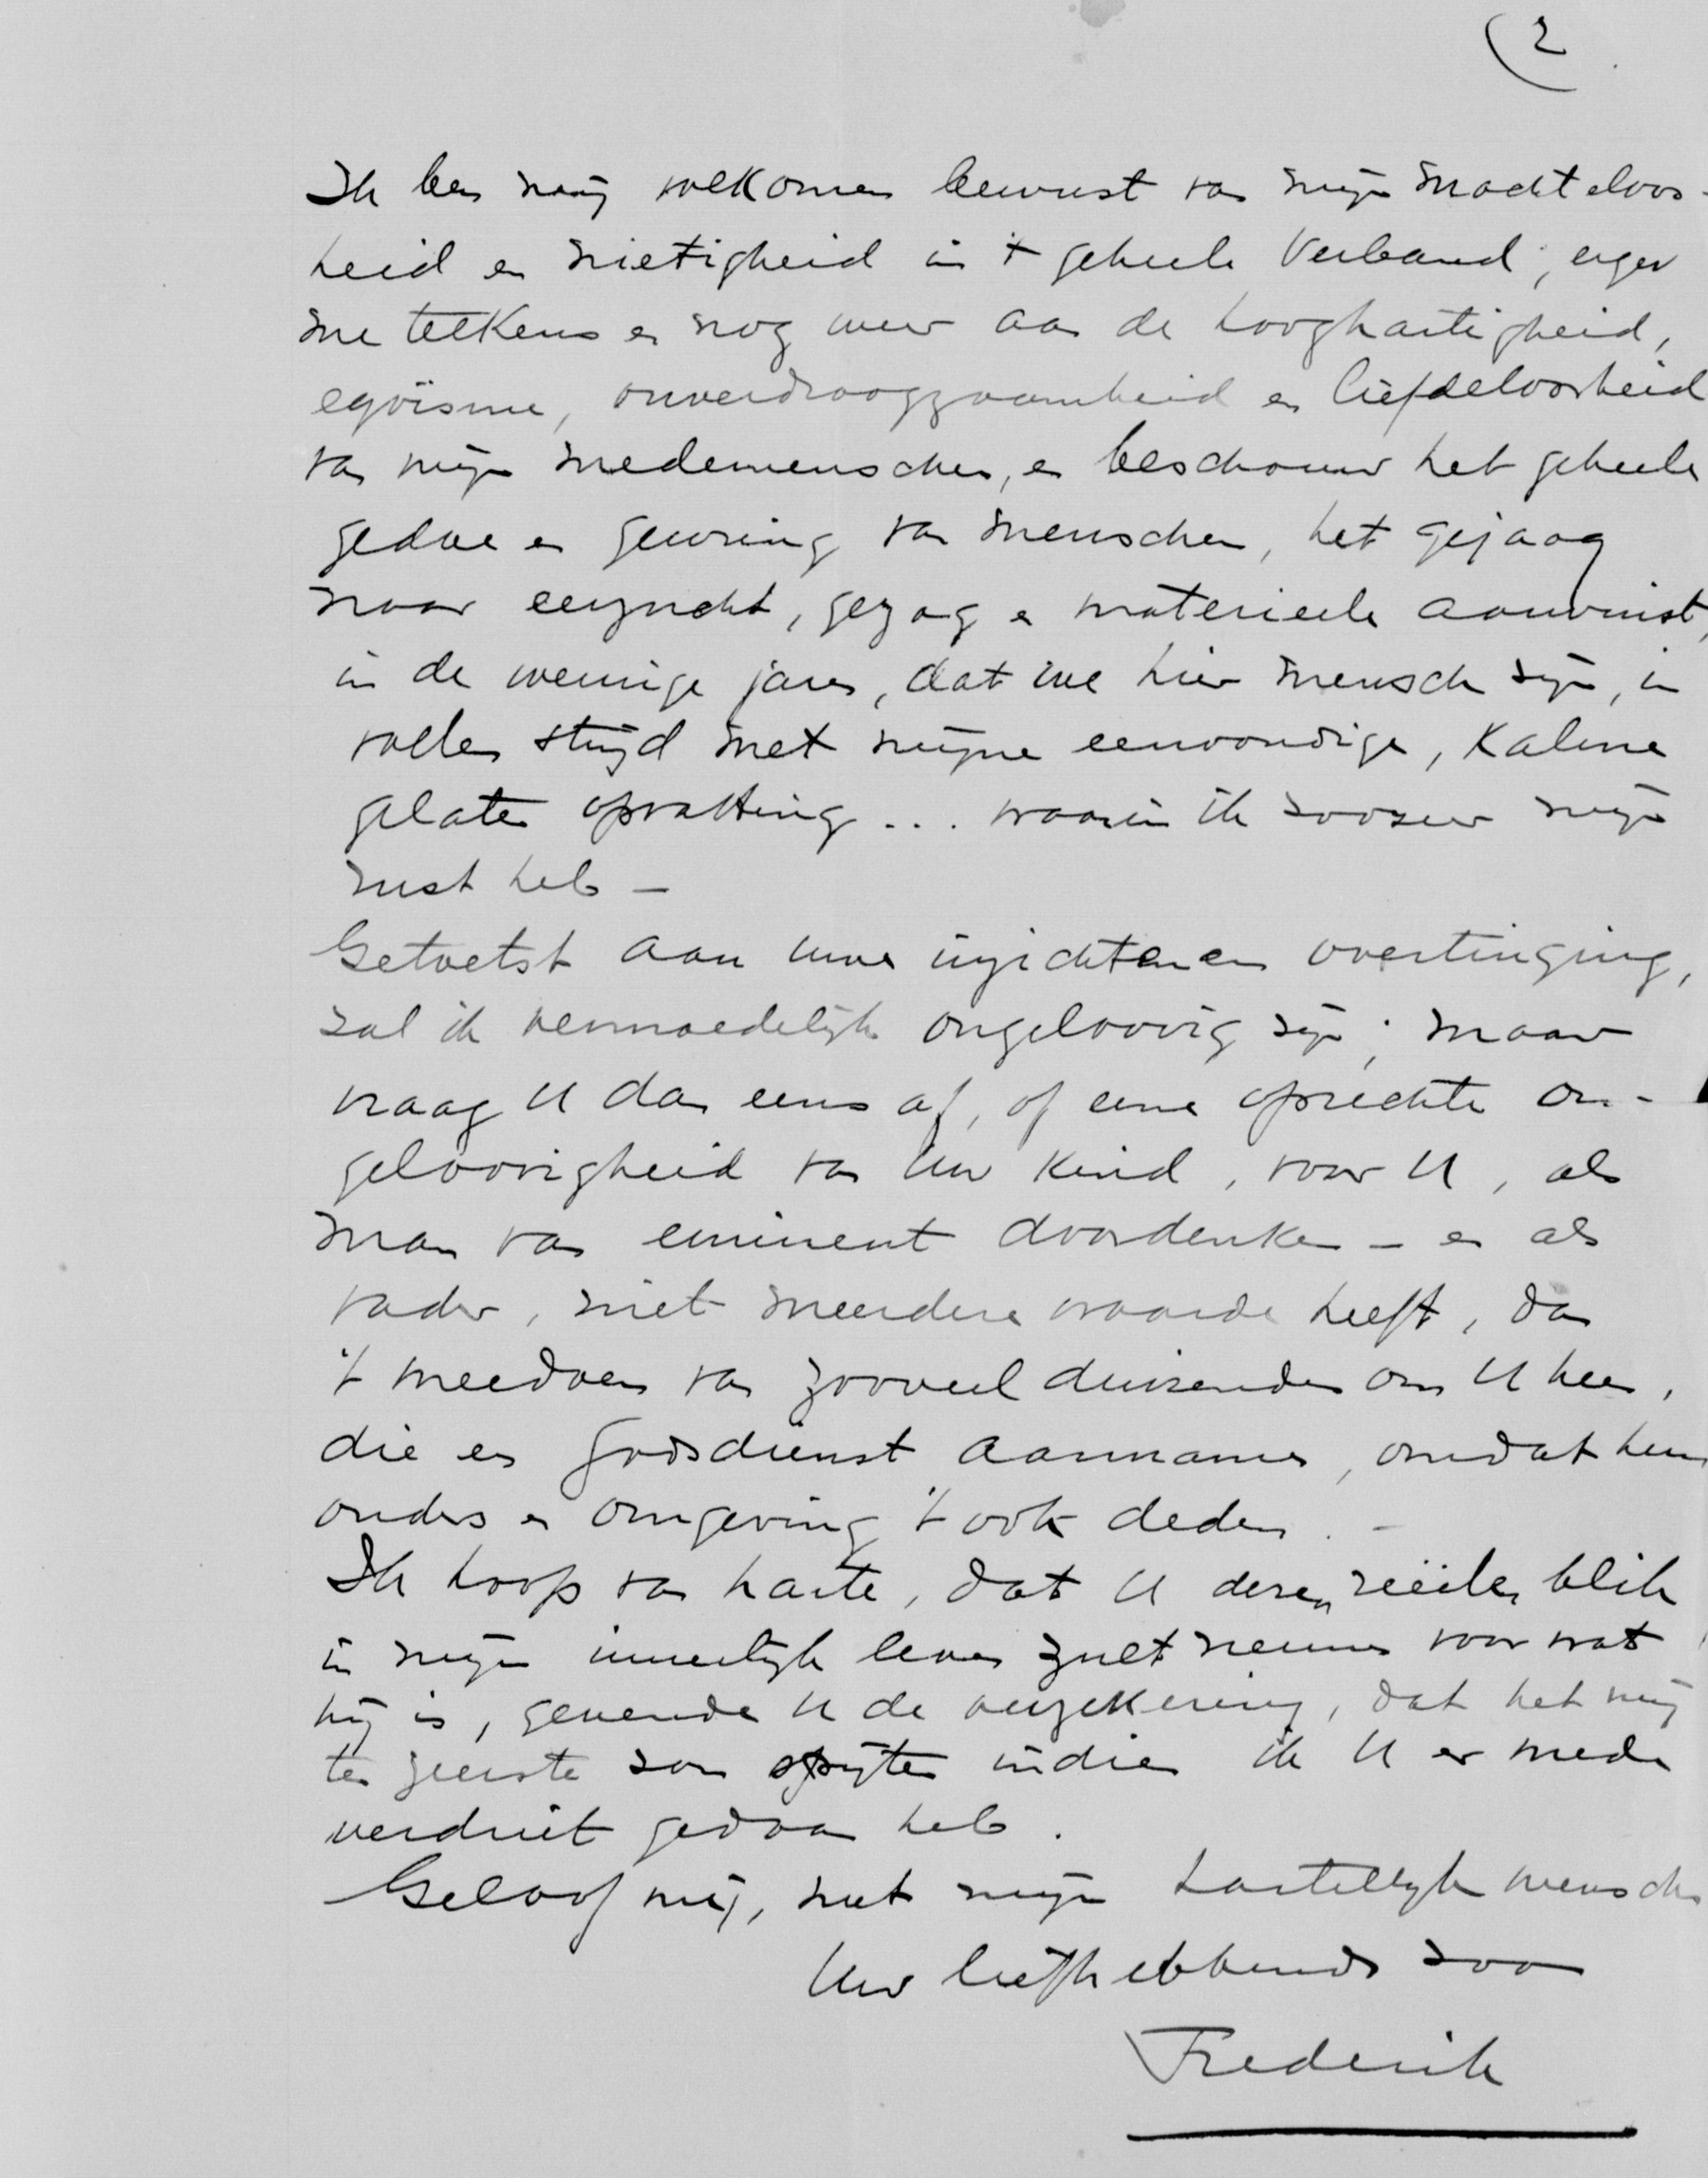 2
Ik ben mij volkomen bewust van mijn machteloos-
heid en nietigheid in 't geheele Verband; erger
me telkens en nog meer aan de hooghartigheid,
egoïsme, onverdraagzaamheid en liefdeloosheid
van mijn medemenschen, en beschouw het geheele
gedoe en gewring van menschen, het gejaag
naar eerzucht, gezag en materieele aanwinst,
in de weinige jaren, dat we hier mensch zijn, in
vollen strijd met mijne eenvoudige, Kalme
gelaten opvatting... waarin ik zoozeer mijn
rust heb —
Getoetst aan uwe inzichten en overtuiging,
zal ik vermoedelijk ongeloovig zijn; maar
vraag U dan eens af, of eene oprechte on-
geloovigheid van Uw Kind, voor U, als
man van eminent doordenken — en als
vader, niet meerdere waarde heeft, dan
't meedoen van zooveel duizenden om U heen,
die en godsdienst aannamen, omdat hun
ouders en omgeving 't ook deden. —
Ik hoop van harte, dat U dezen reëelen blik
in mijn innerlijk leven zult nemen voor wat
hij is, gevende U de verzekering, dat het mij
ten zeerste zou spijten indien ik U er mede
verdriet gedaan heb.
Geloof mij, met mijn hartelijke wenschen
Uw liefhebbende zoon
Frederik